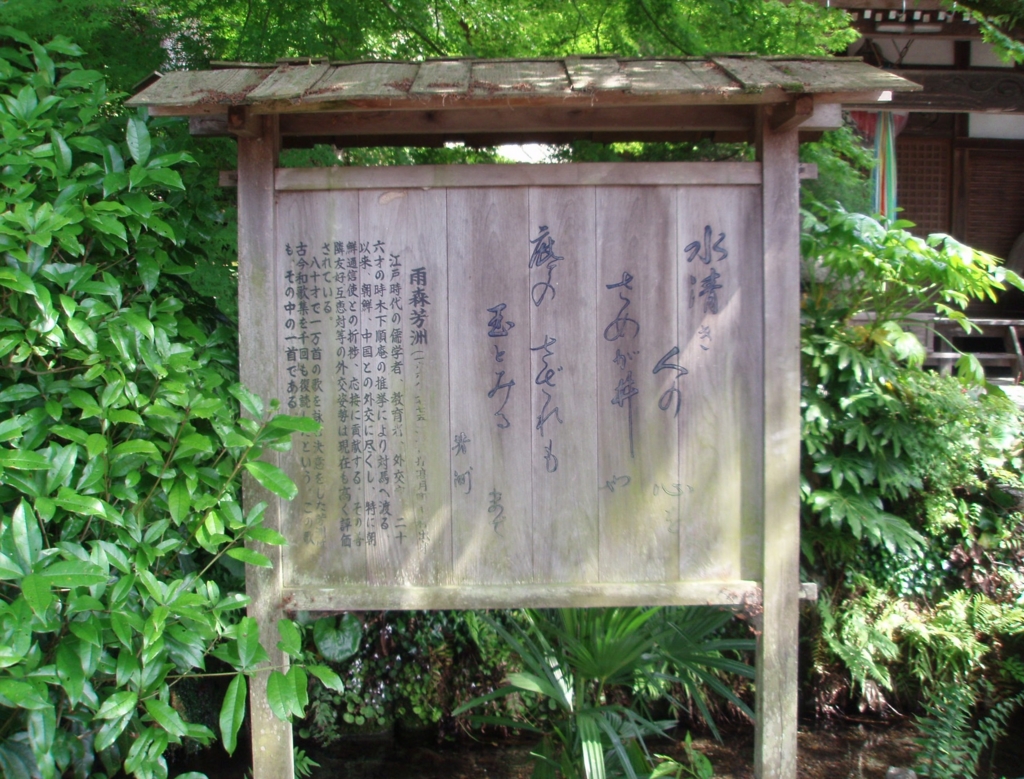 水清き
人の心を
さめが井や
底のさざれも
玉とみる
まで
芳洲
雨森芳洲
江戸時代の儒学者、教育家、外交家 二十
六才の時木下順庵の推挙により対馬へ渡る、
以来、朝鮮、中国との外交に尽くし、特に朝
鮮通信使との折衝、応接に貢献する。その善
隣友好互恵対等の外交姿勢は現在も高く評価
されている。
八十才で一万首の歌を 決意をした
古今和歌集を千回も復読したという、この歌
も、その中の一首である